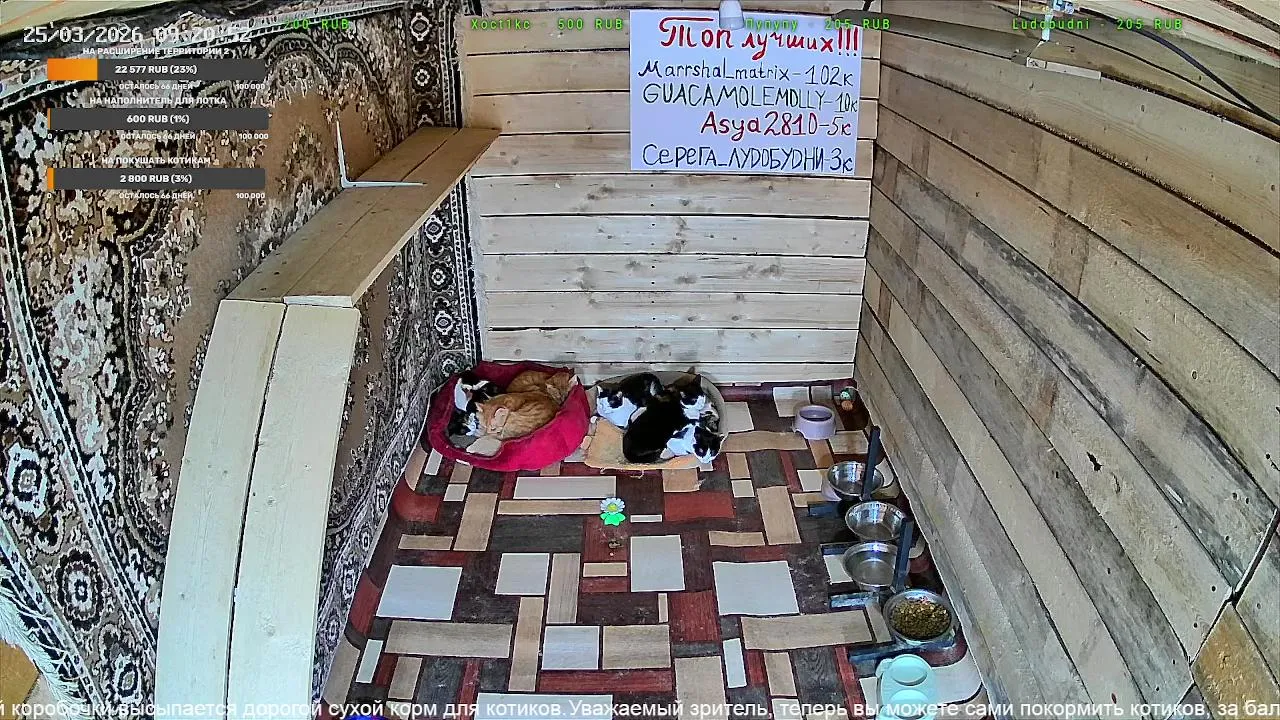 200 RUB
Xoct1kc - 500 RUB
Пупупу - 205 RUB
Ludobudni - 205 RUB
25/03/2026 09:20:52
НА РАСШИРЕНИЕ ТЕРРИТОРИИ 2
22 577 RUB (23%)
0 ОСТАЛОСЬ 66 ДНЕЙ 100 000
НА НАПОЛНИТЕЛЬ ДЛЯ ЛОТКА
600 RUB (1%)
0 ОСТАЛОСЬ 66 ДНЕЙ 100 000
НА ПОКУШАТЬ КОТИКАМ
2 800 RUB (3%)
0 ОСТАЛОСЬ 66 ДНЕЙ 100 000
Топ лучших!!!
Marrshal_matrix-102к
GUACAMOLEMOLLY-10к
Asya2810-5к
СЕРЕГА_ЛУДОБУДНИ-3к
й коробочки высыпается дорогой сухой корм для котиков.Уважаемый зритель, теперь вы можете сами покормить котиков, за бал